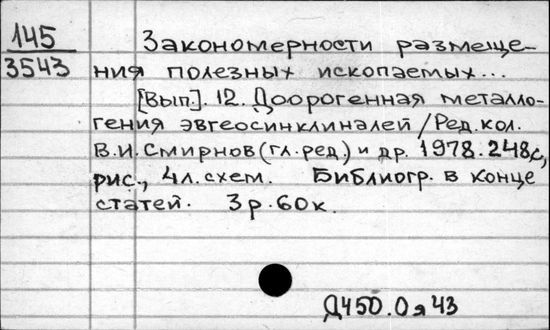 145 Закономерности размеще-
3543 ния полезных ископаемых...
[Вып]. 12. Доорогенная металло-
гения эвгеосинклиналей / Ред. кол.
В.И. Смирнов (гл. ред.) и др. 1978. 248 с,
рис., 4 л. схем. Библиогр. в конце
статей. 3 р. 60 к.
Д450.0я43